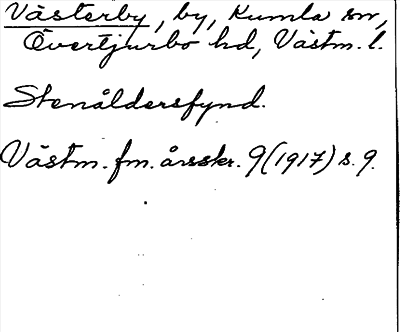 Västerby, by, Kumla sn,
Övertjurbo hd, Västm. l.
Stenåldersfynd.
Västm. fm. årsskr. 9 (1917) s. 9.